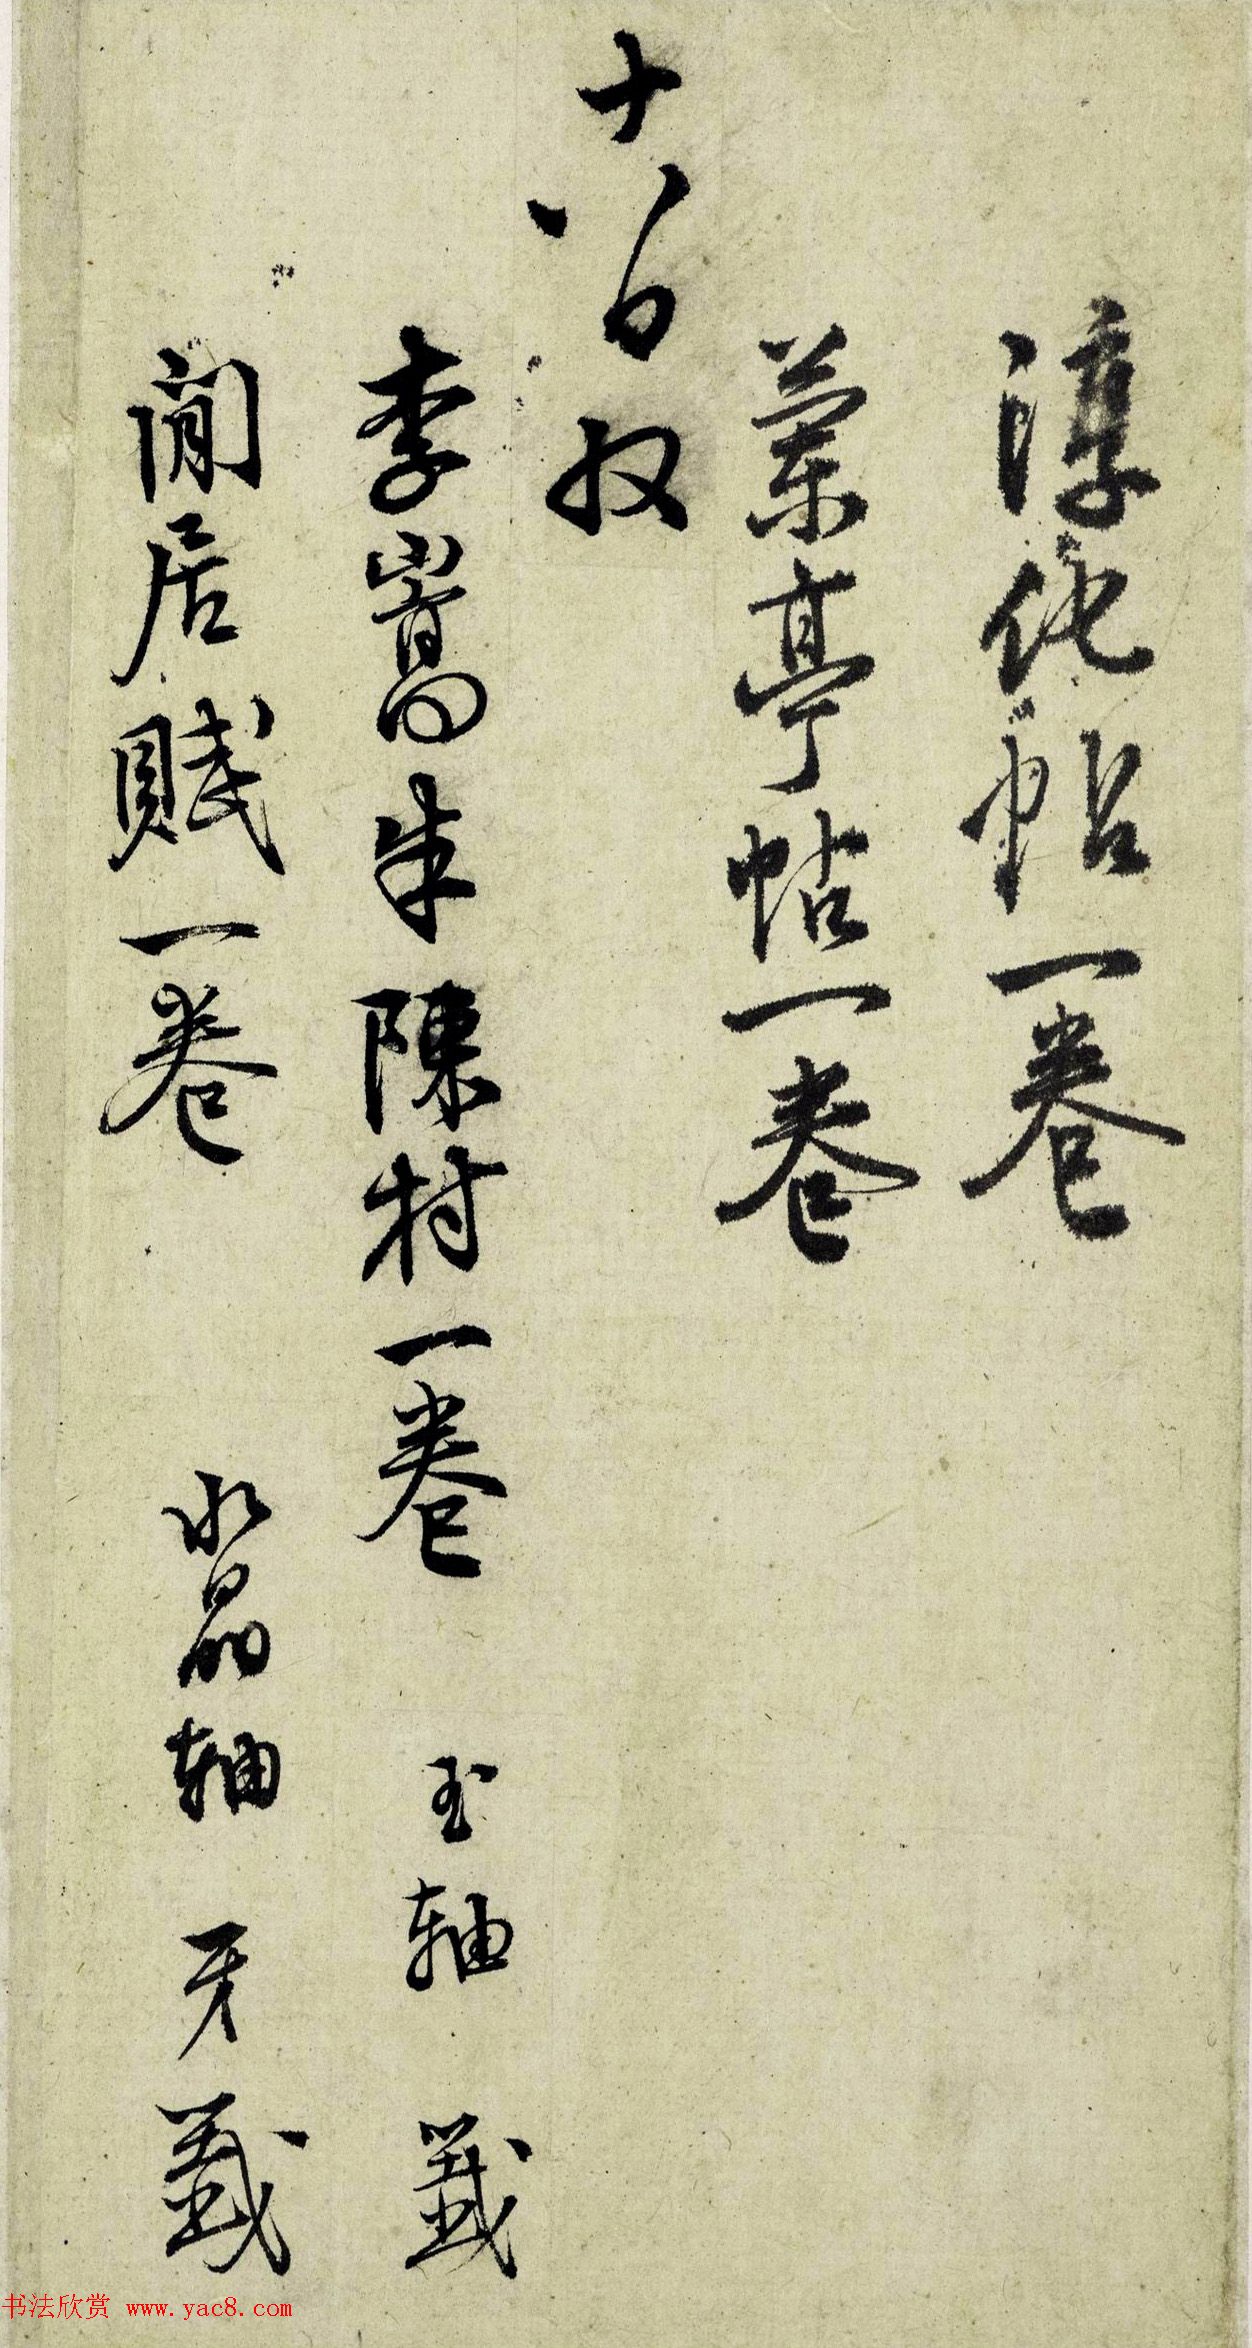 淳化帖一卷
蘭亭帖一卷
十八日收
李嵩朱陳村一卷 玉軸 籤
閒居賦一卷 水晶軸 牙籤
书法欣赏 www.yac8.com